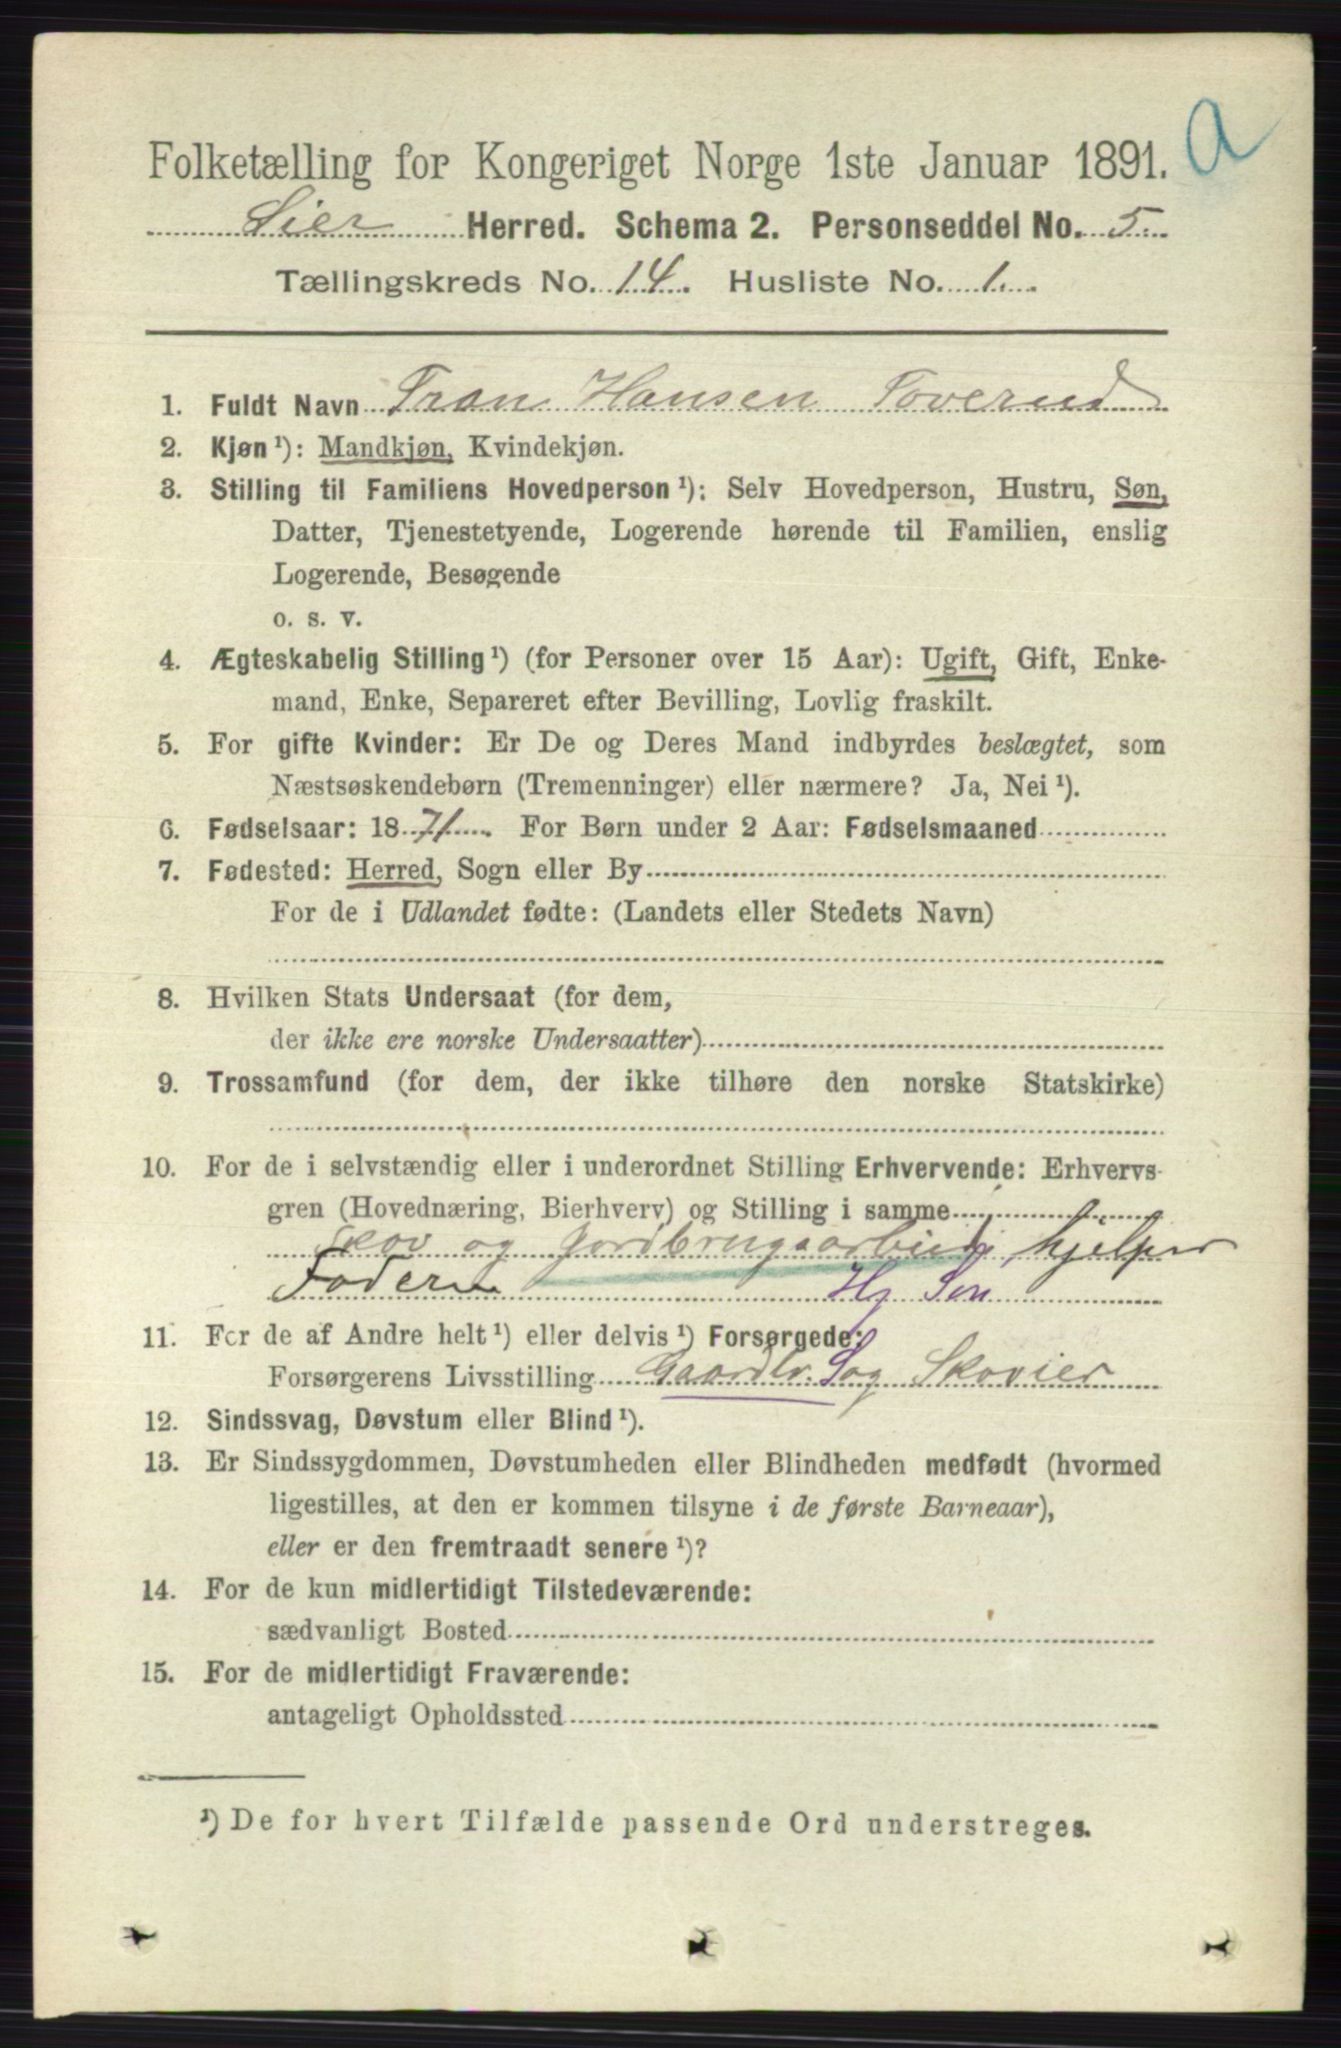 a
Folketælling for Kongeriget Norge 1ste Januar 1891.
Lier Herred. Schema 2. Personseddel No. 5.
Tællingskreds No. 14. Husliste No. 1.
1. Fuldt Navn Tron Hansen Toverud
2. Kjøn ¹): Mandkjøn, Kvindekjøn.
3. Stilling til Familiens Hovedperson ¹): Selv Hovedperson, Hustru, Søn,
Datter, Tjenestetyende, Logerende hørende til Familien, enslig
Logerende, Besøgende
o. s. v.
4. Ægteskabelig Stilling ¹) (for Personer over 15 Aar): Ugift, Gift, Enke-
mand, Enke, Separeret efter Bevilling, Lovlig fraskilt.
5. For gifte Kvinder: Er De og Deres Mand indbyrdes beslægtet, som
Næstsøskendebørn (Tremenninger) eller nærmere? Ja, Nei ¹).
6. Fødselsaar: 1871. For Børn under 2 Aar: Fødselsmaaned
7. Fødested: Herred, Sogn eller By
For de i Udlandet fødte: (Landets eller Stedets Navn)
8. Hvilken Stats Undersaat (for dem,
der ikke ere norske Undersaatter)
9. Trossamfund (for dem, der ikke tilhøre den norske Statskirke)
10. For de i selvstændig eller i underordnet Stilling Erhvervende: Erhvervs-
gren (Hovednæring, Bierhverv) og Stilling i samme
Skov og Jordbrugsarbeid, hjelper
Faderen Hj Søn
11. For de af Andre helt ¹) eller delvis ¹) Forsørgede:
Forsørgerens Livsstilling Gaardbr. S og Skovier
12. Sindssvag, Døvstum eller Blind ¹).
13. Er Sindssygdommen, Døvstumheden eller Blindheden medfødt (hvormed
ligestilles, at den er kommen tilsyne i de første Barneaar),
eller er den fremtraadt senere ¹)?
14. For de kun midlertidigt Tilstedeværende:
sædvanligt Bosted
15. For de midlertidigt Fraværende:
antageligt Opholdssted
¹) De for hvert Tilfælde passende Ord understreges.